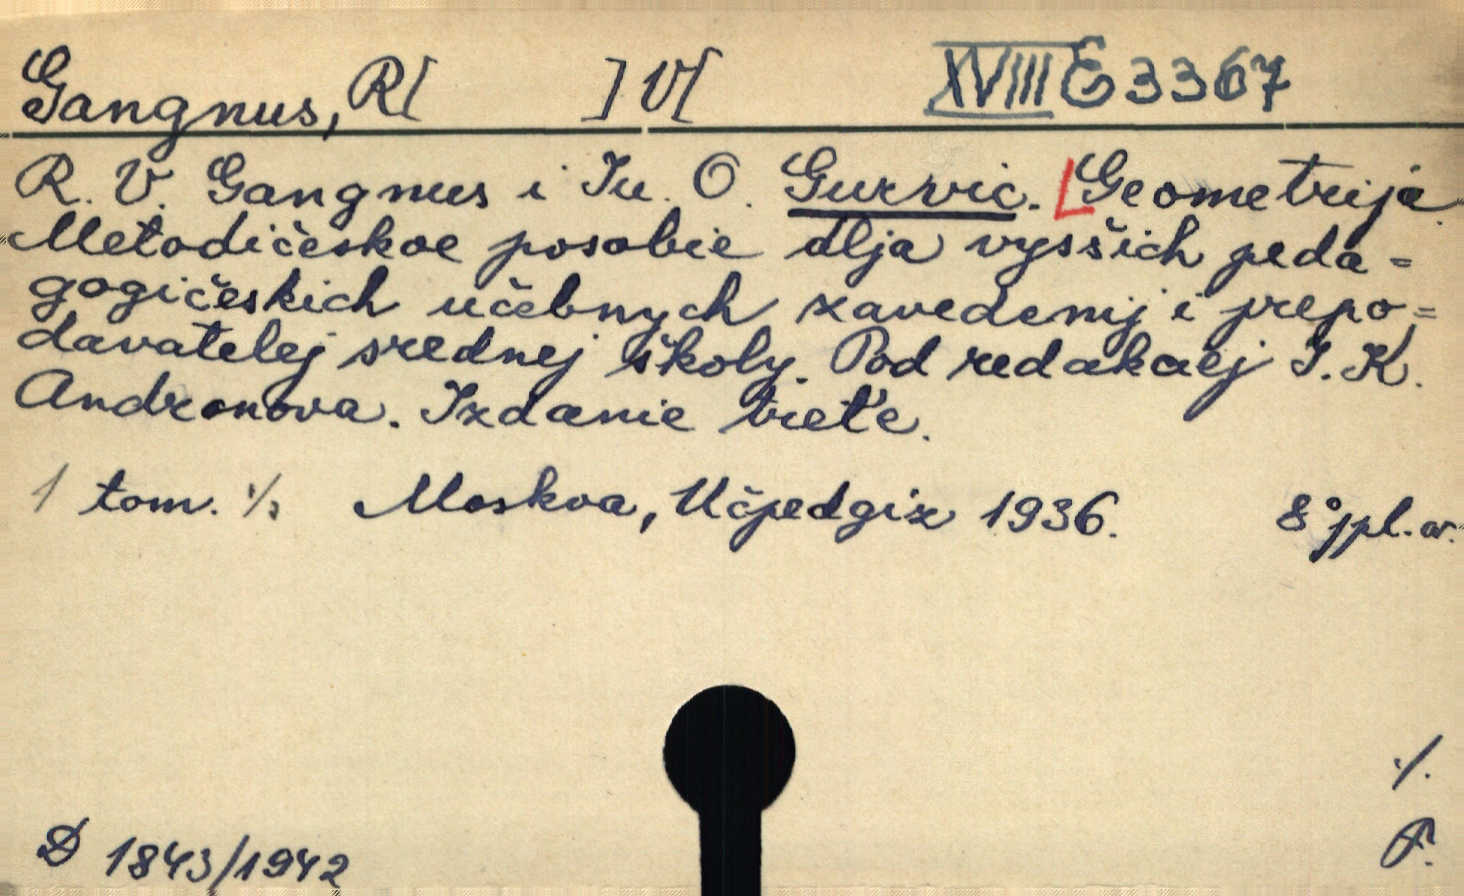 Gangnus, R[ ] V[ XVIII E 3367
R. V. Gangnus i Ju. O. Gurvic. [Geometrija.
Metodičeskoe posobie dlja vysšich peda=
gogičeskich učebnych zavedenij i prepo=
davatelej srednej školy. Pod redakciej I. K.
Andronova. Izdanie tret'e.
1 tom. Moskva, Učpedgiz 1936. 8°
D 1843/1942